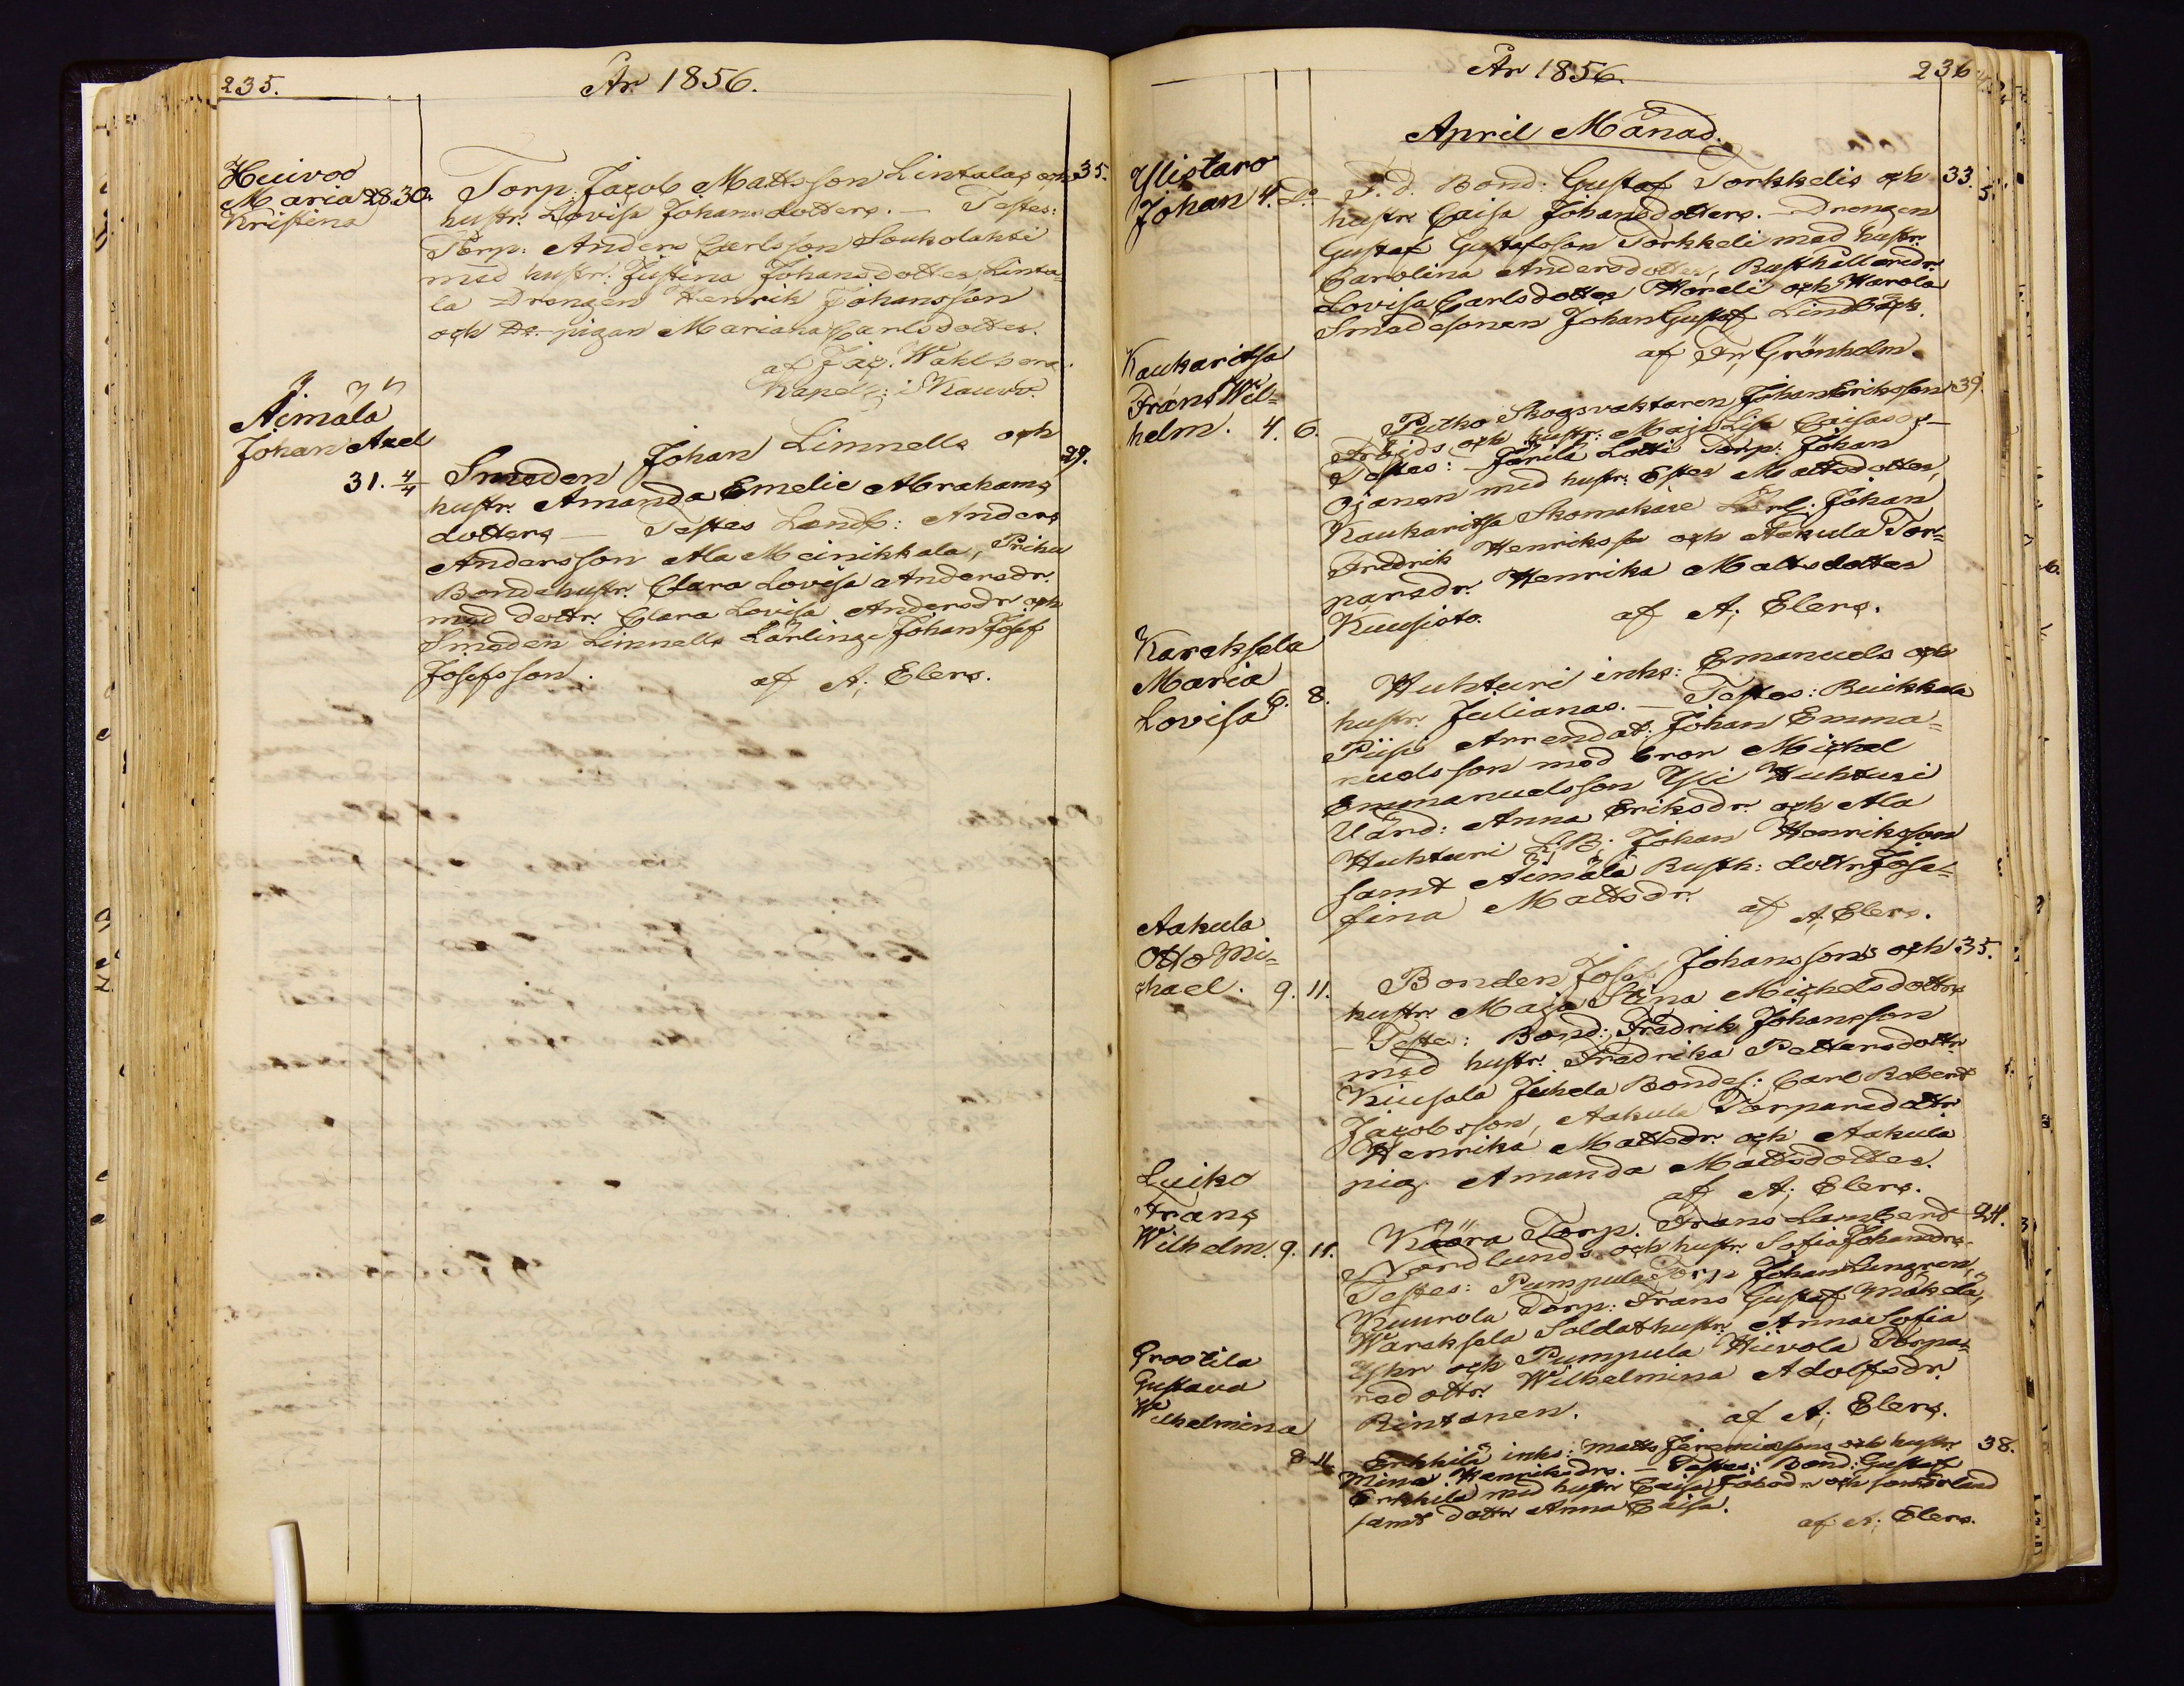 235.
År 1856.
Huivoo
Maria 28. 30.
Kristina
Torp. Jacob Mattsson Lintalas och 35.
hustr. Lovisa Johansdotters. — Testes:
Torp: Anders Carlsson Soukolahti
med hustr. Justina Johansdotter, Linta-
la Drengen Henrik Johansson
och D:o pigan Mariana Carlsdotter.
af Jac. Wahlberg.
Kapell: i Kauvv.
Äimälä
Johan Axel
31. 4/4
Smeden Johan Limnells och 29.
hustr. Amanda Emelie Abrahams
dotters — Testes Landb: Anders
Andersson Ala Meinikkala, Prihu
Bondehustr. Clara Lovisa Andersdr.
med dottr. Clara Lovisa Andersdr. och
Smeden Limnells Lärlinge Johan Josef
Josefsson.
af A; Elers.
År 1856.
236
April Månad.
Ylistaro
Johan 4. D:o
F. d. Bond: Gustaf Torkkelis och 33.
hustr. Caisa Johansdotters. — Drengen
Gustaf Gustafsson Torkkeli med hustr.
Carolina Andersdotter, Rusthållaredr.
Lovisa Carlsdotter Horeli och Harola
Smedesonen Johan Gustaf Lindbäck.
af Fr; Grönholm.
Kaukaritsa
Frans Wil=
helm. 4. 6.
Putko Skogsvaktaren Johan Eriksson 39.
Arvids och hustr: Maja Lisa Caisasdr. —
Testes: Järilä Lotti Torp: Johan
Ojanen med hustr. Ester Mattsdotter,
Kaukaritsa Skomakare Lärl: Johan
Fredrik Henriksson och Aakula Tor=
paredr. Henrika Mattsdotter
Kuusisto.
af A; Elers.
Kareksela
Maria
Lovisa 6. 8.
Huhturi inhs: Emanuels och
hustr. Julianas. — Testes: Ruikkala
Piisi Arrendat: Johan Emma=
nuelsson med bror Michel
Emmanuelsson Yli Huhturi
Värd: Anna Eriksdr. och Ala
Huhturi L.B; Johan Henriksson
samt Äimälä Rusth: dottr. Jose=
fina Mattsdr.
af A; Elers.
Aakula
Otto Mi=
chael. 9. 11.
Bonden Josef Johanssons och 35.
hustr. Maja Stina Michelsdotters
— Testes: Bond: Fredrik Johansson
med hustr. Fredrika Pettersdottr.
Kiusala Juhela Bondes: Carl Robert
Jacobsson, Aakula Torparedottr.
Henrika Mattsdr. och Aakula
pig. Amanda Mattsdotter.
af A; Elers.
Luiko
Frans
Wilhelm. 9. 11.
Käära Torp. Frans Lamberd 24.
Nordlunds och hustr. Sofia Johansdrs.
Testes: Pumpula Torp: Johan Lungren,
Kuurola Torp: Frans Gustaf Mäkelä,
Wareksela Soldathustr. Anna Sofia
Yhr och Pumpula Hiivola Torpa=
redottr. Wilhelmina Adolfsdr.
Rintanen.
af A; Elers.
Prootila
Gustava
Wilhelmina
8 11.
Erkkilä inhs: Matts Jeremiassons och hustr. 38.
Mina Henriksdrs. — Testes: Bond: Gustaf
Erkkilä med hustr Caisa Jakobdr. och son Erland
samt dottr. Anna Caisa.
af A; Elers.